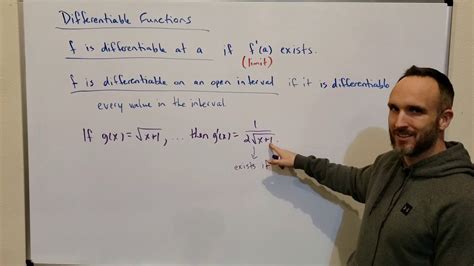 Differentiable Functions
f is differentiable at a if f'(a) exists.
(limit)
f is differentiable on an open interval if it is differentiable
every value in the interval
If g(x) = √x+1, ... then g'(x) = 1/2√x+1
exists